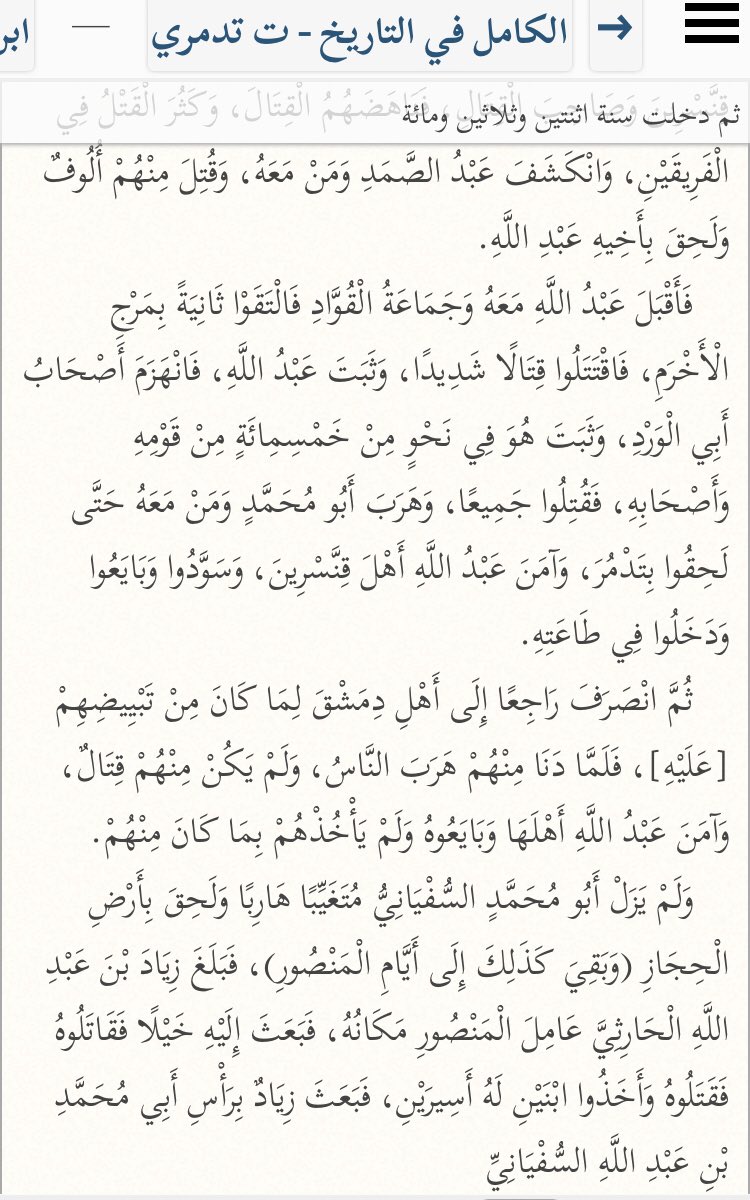 الكامل في التاريخ - ت تدمري — ابن
ثم دخلت سنة اثنتين وثلاثين ومائة
الْقِتَالَ، وَكَثُرَ الْقَتْلُ فِي
الْفَرِيقَيْنِ، وَانْكَشَفَ عَبْدُ الصَّمَدِ وَمَنْ مَعَهُ، وَقُتِلَ مِنْهُمْ أُلُوفٌ
وَلَحِقَ بِأَخِيهِ عَبْدِ اللَّهِ.
فَأَقْبَلَ عَبْدُ اللَّهِ مَعَهُ وَجَمَاعَةُ الْقُوَّادِ فَالْتَقَوْا ثَانِيَةً بِمَرْجِ
الْأَخْرَمِ، فَاقْتَتَلُوا قِتَالًا شَدِيدًا، وَثَبَتَ عَبْدُ اللَّهِ، فَانْهَزَمَ أَصْحَابُ
أَبِي الْوَرْدِ، وَثَبَتَ هُوَ فِي نَحْوٍ مِنْ خَمْسِمِائَةٍ مِنْ قَوْمِهِ
وَأَصْحَابِهِ، فَقُتِلُوا جَمِيعًا، وَهَرَبَ أَبُو مُحَمَّدٍ وَمَنْ مَعَهُ حَتَّى
لَحِقُوا بِتَدْمُرَ، وَآمَنَ عَبْدُ اللَّهِ أَهْلَ قِنَّسْرِينَ، وَسَوَّدُوا وَبَايَعُوا
وَدَخَلُوا فِي طَاعَتِهِ.
ثُمَّ انْصَرَفَ رَاجِعًا إِلَى أَهْلِ دِمَشْقَ لِمَا كَانَ مِنْ تَبْيِيضِهِمْ
[عَلَيْهِ]، فَلَمَّا دَنَا مِنْهُمْ هَرَبَ النَّاسُ، وَلَمْ يَكُنْ مِنْهُمْ قِتَالٌ،
وَآمَنَ عَبْدُ اللَّهِ أَهْلَهَا وَبَايَعُوهُ وَلَمْ يَأْخُذْهُمْ بِمَا كَانَ مِنْهُمْ.
وَلَمْ يَزَلْ أَبُو مُحَمَّدٍ السُّفْيَانِيُّ مُتَغَيِّبًا هَارِبًا وَلَحِقَ بِأَرْضِ
الْحِجَازِ (وَبَقِيَ كَذَلِكَ إِلَى أَيَّامِ الْمَنْصُورِ)، فَبَلَغَ زِيَادَ بْنَ عَبْدِ
اللَّهِ الْحَارِثِيَّ عَامِلَ الْمَنْصُورِ مَكَانُهُ، فَبَعَثَ إِلَيْهِ خَيْلًا فَقَاتَلُوهُ
فَقَتَلُوهُ وَأَخَذُوا ابْنَيْنِ لَهُ أَسِيرَيْنِ، فَبَعَثَ زِيَادٌ بِرَأْسِ أَبِي مُحَمَّدِ
بْنِ عَبْدِ اللَّهِ السُّفْيَانِيِّ